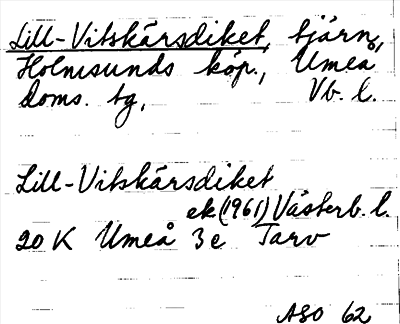 Lill-Vitskärsdiket, tjärn,
Holmsunds köp., Umeå
Doms. tg, Vb. l.
Lill-Vitskärsdiket
ek (1961) Västerb. l.
20 K Umeå 3e Tarv
ASO 62